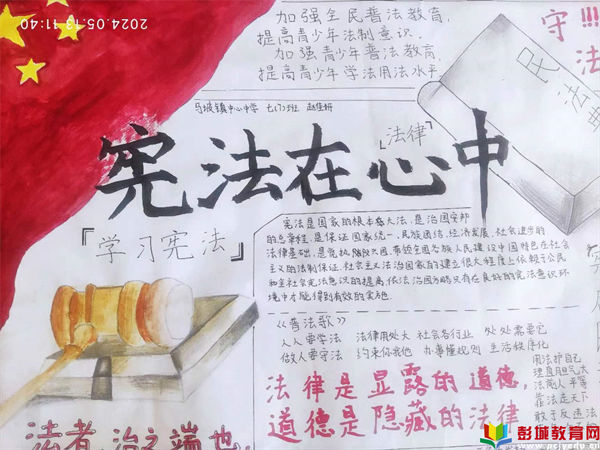 2024.05.13 11:40
加强全民普法教育,
提高青少年法制意识
加强青少年普法教育,
提高青少年学法用法水平
守!!!
法
民法典
马坡镇中心中学 七(7)班
宪法在心中
「法律」
『学习宪法』
宪法是国家的根本大法,是治国安邦
的总章程,是保证国家统一、民族团结、经济发展、社会进步的
法律基础,是党执政兴国、带领全国各族人民建设中国特色社会
主义的法制保证。社会主义法治国家的建立很大程度上依赖于公民
和全社会宪法意识的提高,依法治国方略只有在良好的宪法意识环
境中才能得到有效的实施
《普法歌》
人人要学法 法律用处大 社会各行业 处处需要它
做人要守法 约束你我他 办事懂规则 生活秩序化
用法护自己
理直胆气大
法随人平等
靠法走天下
敢于反违法
法律是显露的道德,
道德是隐藏的法律
法者,治之端也
彭城教育网